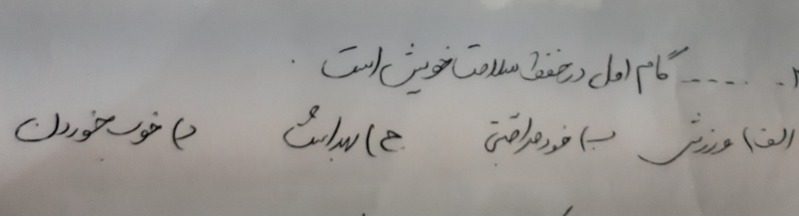 ۲. ..... گام اول در حفظ سلامت خویش است.
الف) ورزش ب) خودمراقبتی ج) بهداشت د) خوب خوردن